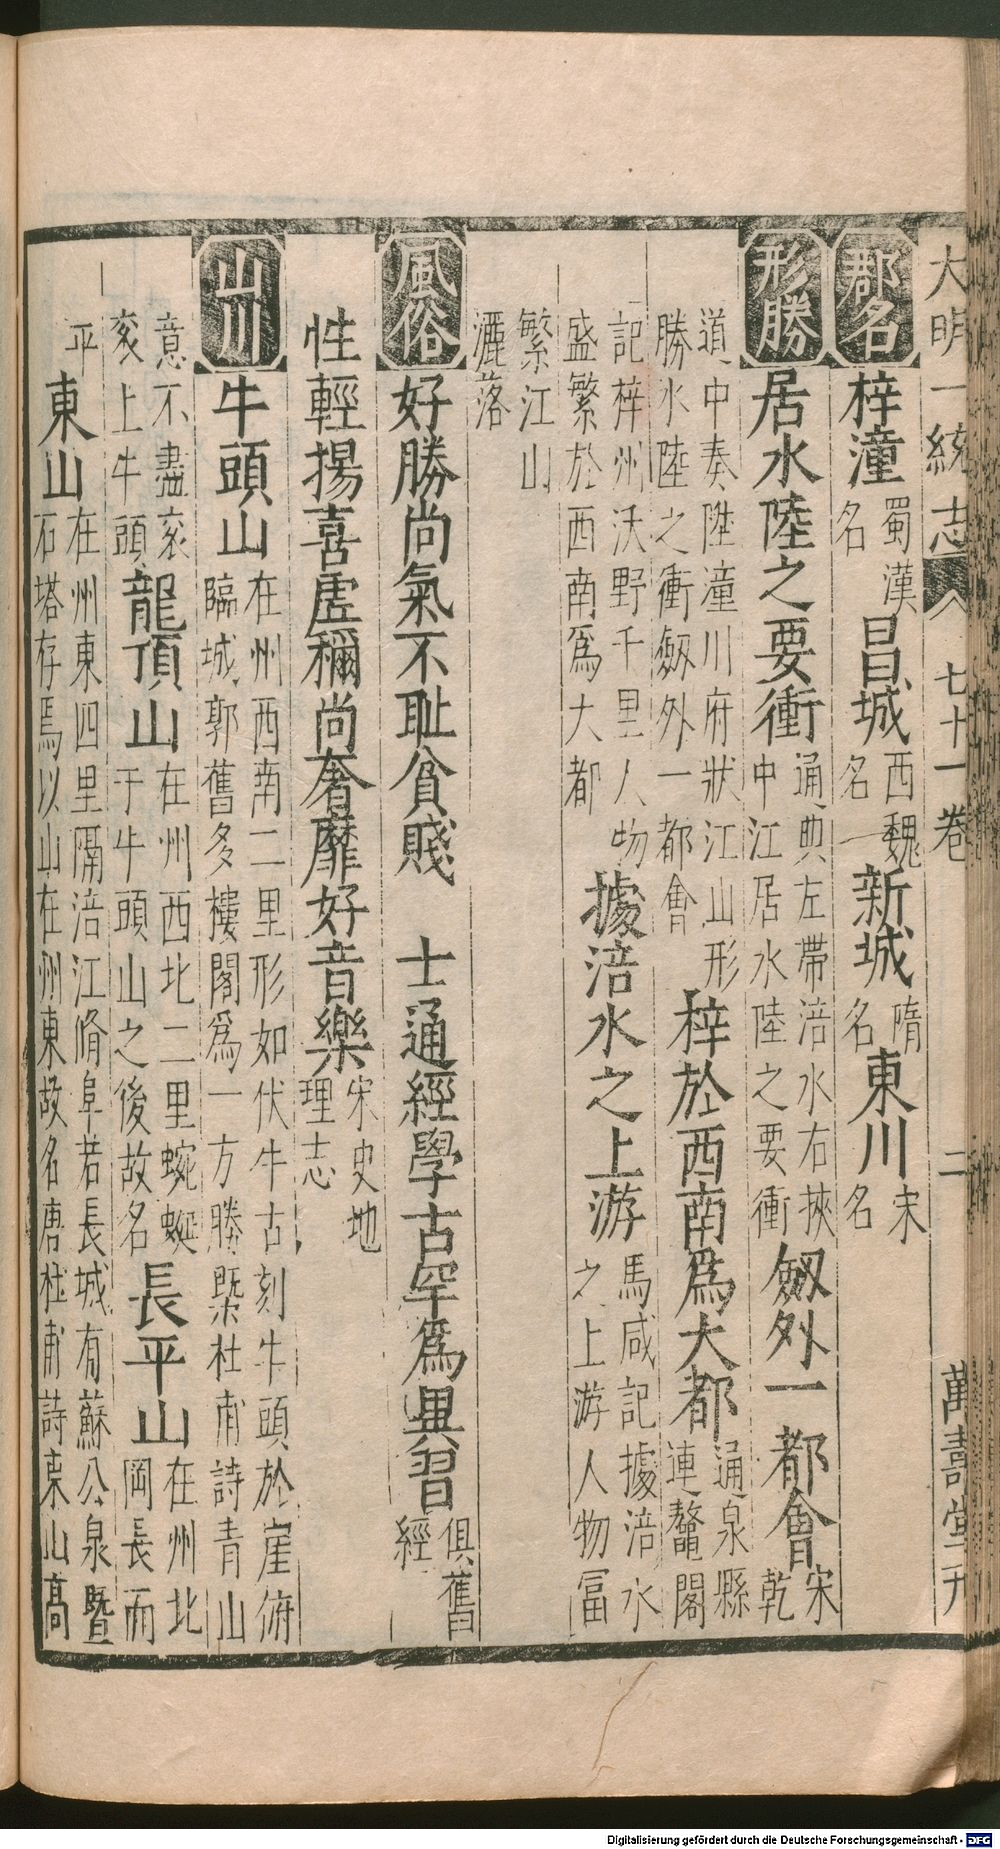 大明一統志 七十一卷 二 萬壽堂刊
郡名 梓潼 蜀漢名 昌城 西魏名 新城 隋名 東川 宋名
形勝 居水陸之要衝 通典左帶涪水右挾中江居水陸之要衝 劔外一都會 宋乾
道中奏陞潼川府狀江山形勝水陸之衝劔外一都會 梓於西南爲大都 通泉縣連鼇閣
記梓州沃野千里人物盛繁於西南爲大都 據涪水之上游 馬咸記據涪水之上游人物冨
繁江山灑落
風俗 好勝尚氣不耻貧賤 士通經學古罕爲異習 俱舊經
性輕揚喜虛稱尚奢靡好音樂 宋史地理志
山川 牛頭山 在州西南二里形如伏牛古刻牛頭於崖俯臨城郭舊多樓閣爲一方勝槩杜甫詩青山
意不盡衮衮上牛頭 龍頂山 在州西北二里蜿蜒于牛頭山之後故名 長平山 在州北岡長而
平 東山 在州東四里隔涪江脩阜若長城有蘇公泉暨石塔存焉以山在州東故名唐杜甫詩東山高
Digitalisierung gefördert durch die Deutsche Forschungsgemeinschaft - DFG